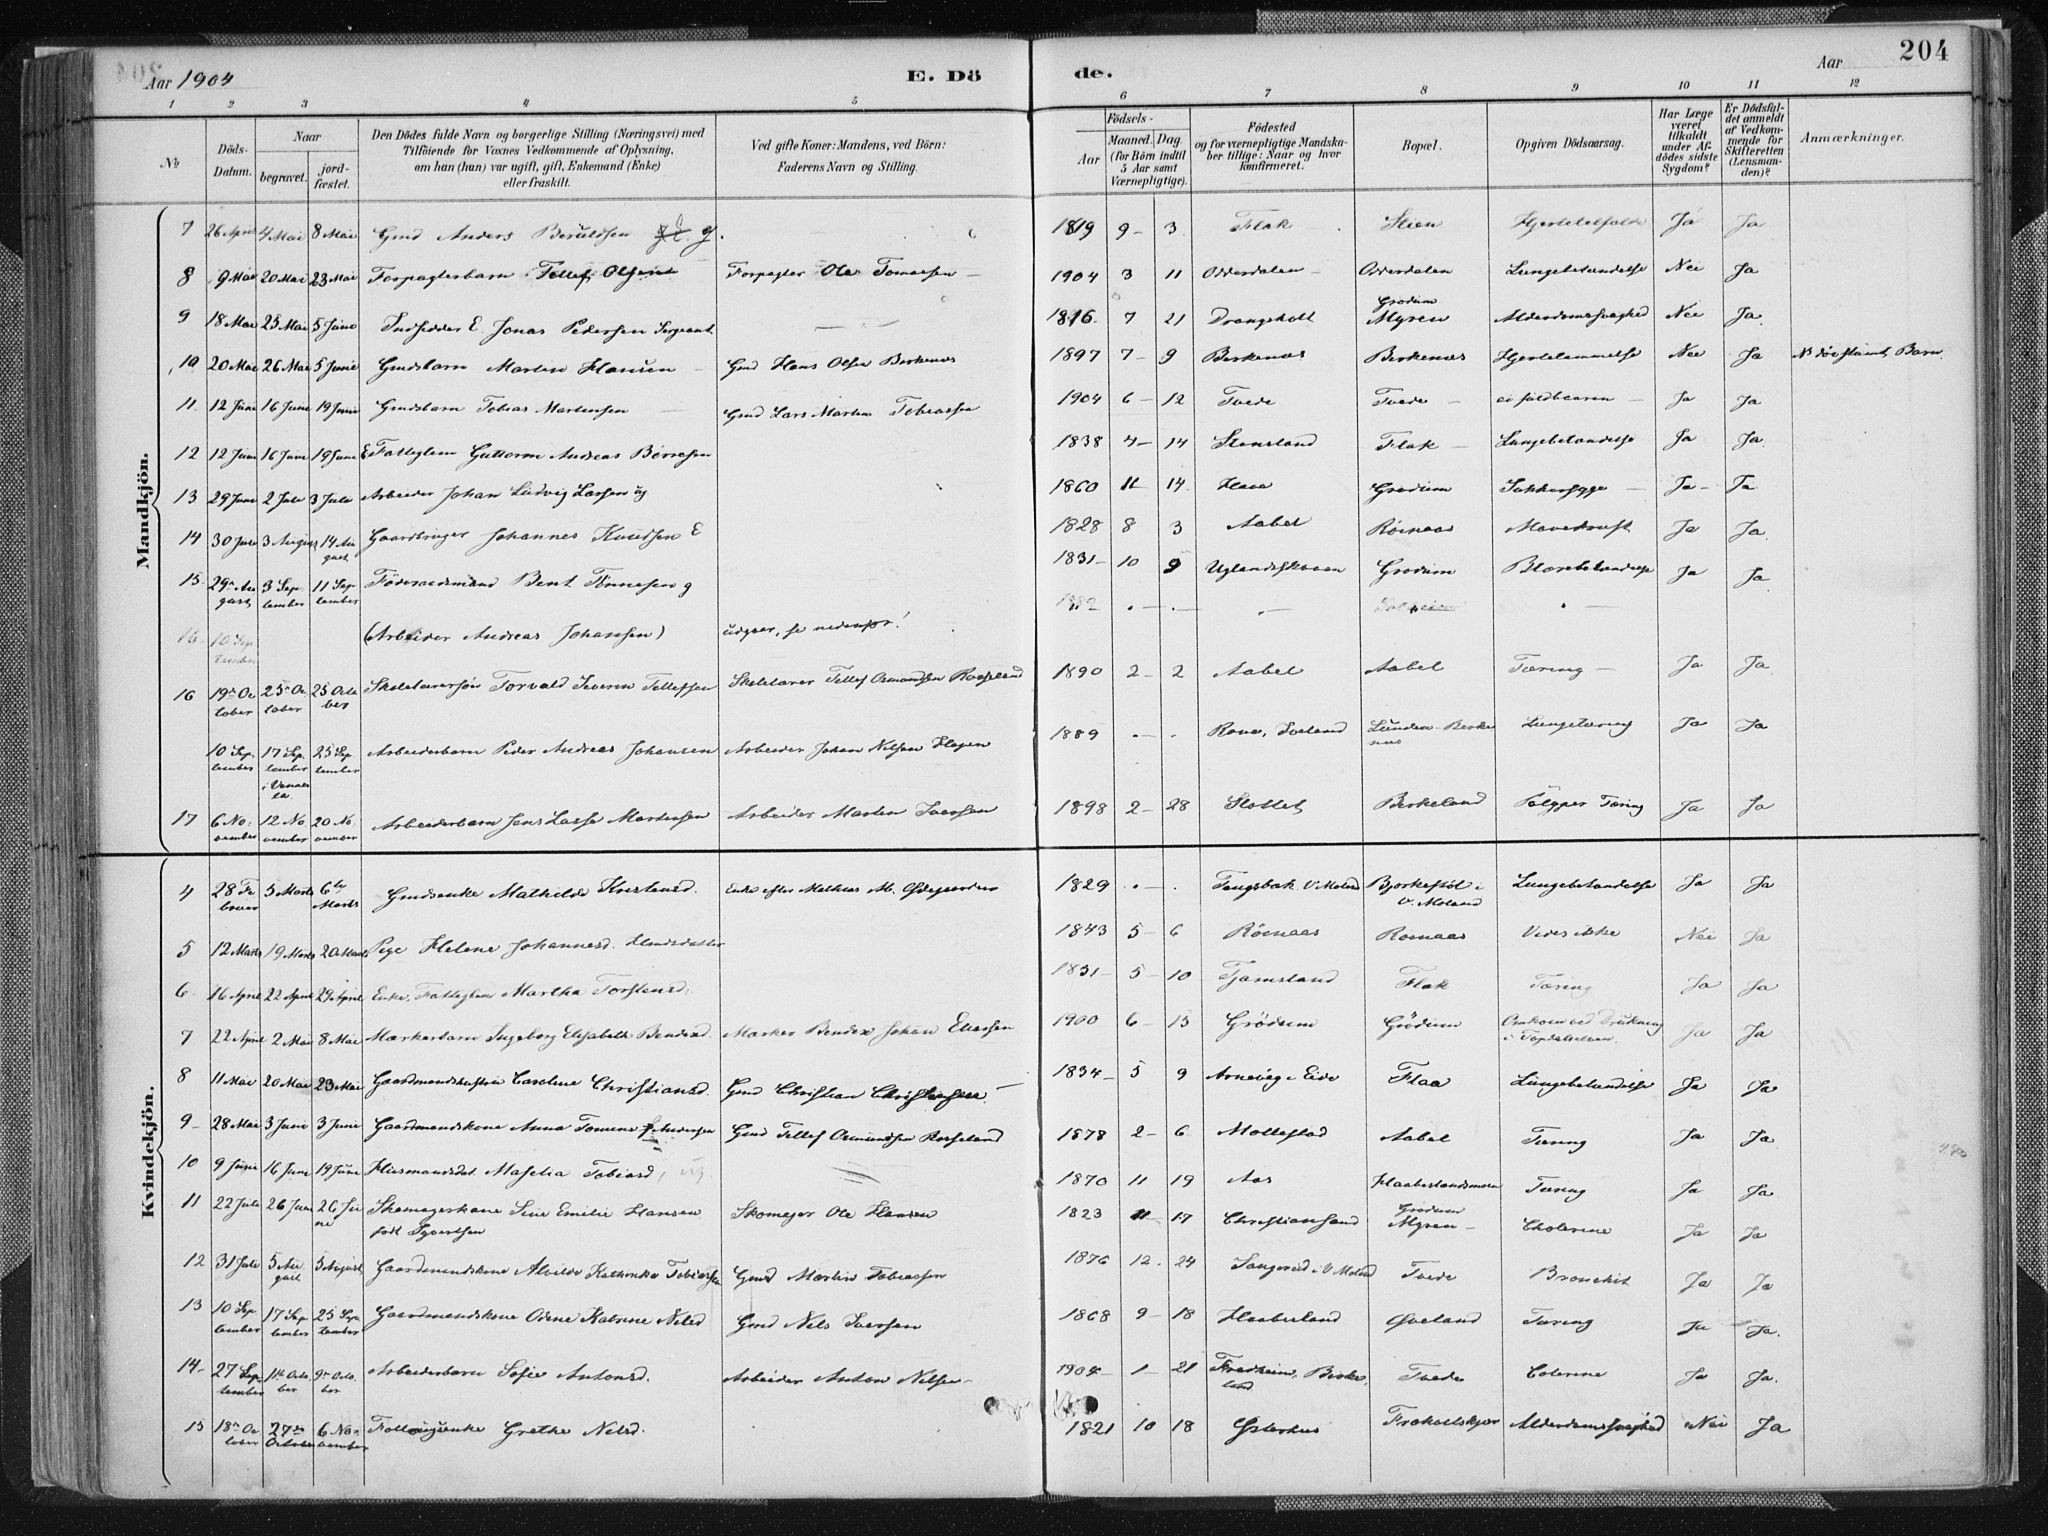 Aar 1904
E. Döde.
Aar
204
1 2 3 4 5 6 7 8 9 10 11 12
№
Döds-Datum.
Naar
begravet.
jord-fæstet.
Den Dödes fulde Navn og borgerlige Stilling (Næringsvei) med
Tilföiende for Voxnes Vedkommende af Oplysning,
om han (hun) var ugift, gift, Enkemand (Enke)
eller fraskilt.
Ved gifte Koner: Mandens, ved Börn:
Faderens Navn og Stilling.
Födsels-
Aar
Maaned. Dag.
(for Börn indtil
5 Aar samt
Værnepligtige).
Födested
og for værnepligtige Mandska-
ber tillige: Naar og hvor
konfirmeret.
Bopæl.
Opgiven Dödsaarsag.
Har Læge
været
tilkaldt
under Af-
dödes sidste
Sygdom?
Er Dödsfal-
det anmeldt
af Vedkom-
mende for
Skifteretten
(Lensman-
den)?
Anmærkninger.
Mandkjön.
7 26 April 4 Mai 8 Mai Gmd Anders Beruldsen g. 1819 9 3 Flak Stien Ja Ja
8 9 Mai 20 Mai 23 Mai Forpagterbarn Tellef Olsen Forpagter Ole Tomassen 1904 3 11 Odderdalen Odderdalen Lungebetændelse Nei Ja
9 18 Mai 25 Mai 5 Juni Indsidder E. Jonas Pedersen Sergeant 1816 7 21 Drangsholt Grödum Myren Alderdomssvaghed Nei Ja
10 20 Mai 26 Mai 5 Juni Gmdsbarn Martin Hansen Gmd Hans Olsen Birkenæs 1897 7 9 Birkenæs Birkenæs Hjertelammelse Nei Ja døvstumt Barn
11 12 Juni 16 Juni 19 Juni Gmdsbarn Tobias Martinsen Gmd Lars Martin Tobiassen 1904 6 12 Tvede Tvede ei fuldbaaren Ja Ja
12 12 Juni 16 Juni 19 Juni E Fattiglem Guttorm Andreas Børresen 1838 4 14 Stensland Flak Lungebetændelse Ja Ja
13 29 Juni 2 Juli 3 Juli Arbeider Johan Ludvig Larsen ug 1860 11 14 Flaa Grødum Sukkersyge Ja Ja
14 30 Juli 3 August 14 August Gaardbruger Johannes Knudsen E 1828 8 3 Aabel Röinaas Mavekræft Ja Ja
15 29de August 3 September 11 September Föderaadsmand Bent Tönnesen g 1831 10 9 Uglandskaaen Grödum Blærebetændelse Ja Ja
16 10 September (Arbeider Andreas Johansen) udgaar, se nedenfor! 1882
16 19de October 25de October 25 October Skolelærersøn Torvald Severin Tellefsen Skolelærer Tellef Osmundsen Rosseland 1890 2 2 Aabel Aabel Tæring Ja Ja
10 September 17 September i Vennesla 25 September Arbeiderbarn Peder Andreas Johansen Arbeider Johan Nilsen Hagen 1889 Iveland Lunden Birkenæs Lungetæring Ja Ja
17 6 November 12 November 20 November Arbeiderbarn Jens Lasse Martinsen Arbeider Martin Iversen 1898 2 28 Slottet Birkeland Tæring Ja Ja
Kvindekjön.
4 28 Februar 5 Marts 6te Marts Gmdsenke Mathilde Kristensd. Enke efter Mathias M. Ødegaarden 1829 V. Moland Bjorkestöl i V. Moland Lungebetændelse Ja Ja
5 12 Marts 19 Marts 20 Marts Pige Helene Johannesd. 1843 5 6 Röinaas Roinaas Vides ikke Nei Ja
6 16 April 22 April 29 April Enke, Fattiglem Martha Torstensd. 1831 5 10 Tjamsland Flak Tæring Ja Ja
7 22 April 2 Mai 8 Mai Mærkerbarn Ingeborg Elisabeth Bendixd. Mærker Bendix Johan Eliassen 1900 6 15 Grödum Grödum Omkom ved Drukning i Topdalselven Ja Ja
8 11 Mai 20 Mai 23 Mai Gaardmandshustru Caroline Christiansd. Gmd Christian Christensen 1834 5 9 Arnevig i Eide Flaa Lungebetændelse Ja Ja
9 28 Mai 3 Juni 3 Juni Gaardmandskone Anna Tomine f Andersen Gmd Tellef Osmundsen Rosseland 1878 2 6 Mollestad Aabel Tæring Ja Ja
10 9 Juni 16 Juni 19 Juni Husmandsdat. Maselia Tobiasd, ug 1870 11 19 Aas Tæring Ja Ja
11 22 Juli 26 Juni 26 Juni Skomagerkone Sine Emilie Hansen født Syvertsen Skomager Ole Hansen 1823 11 17 Christiansand Grödum Myren Cholerine Ja Ja
12 31 Juli 5 August 5 August Gaardmandskone Alvilde Kathinka Tobiassen Gmd Martin Tobiassen 1876 12 24 Sangereid i V. Moland Tvede Bronchit Ja Ja
13 10 September 17 September 25 September Gaardmandskone Odine Katrine Nilsd Gmd Nels Iversen 1868 9 18 Haaberland Øveland Tæring Ja Ja
14 27 September 1ste October 9de October Arbeiderbarn Sofie Antonsd. Arbeider Anton Nilsen 1904 1 21 Fredheim, Birkeland Tvede Colerine Ja Ja
15 18de October 27de October 6 November Fattigenke Grethe Nilsd. 1821 10 18 Østerhus Alderdomssvaghed Nei Ja